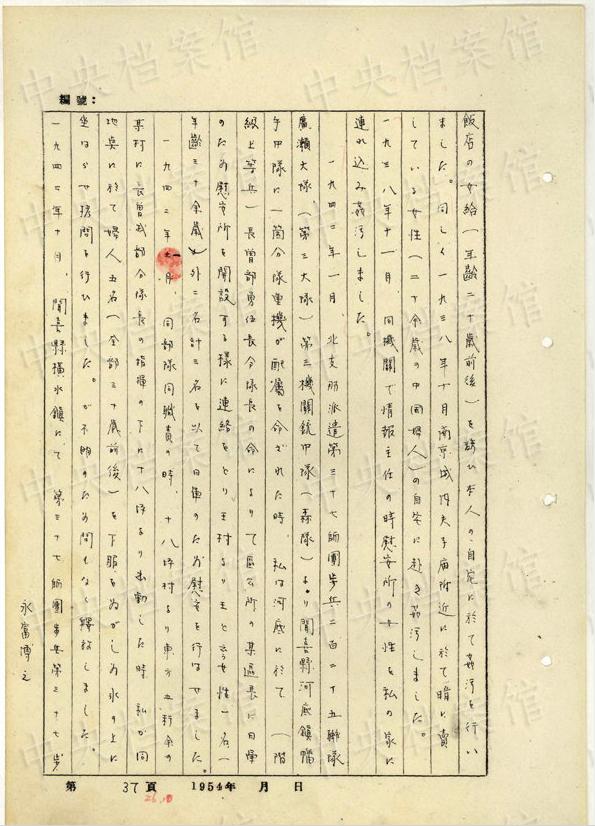 編號：
飯店の女給（年齢二十歳前後）を誘ひ本人の自宅に於て姦汚を行い
ました。同じく一九三八年十月南京城内夫子廟附近に於て暗に賣
している女性（二十余歳の中国婦人）の自宅に赴き姦汚しました。
一九三八年十一月、同機關で情報主任の時慰安所の女性を私の家に
連れ込み姦汚しました。
一九四二年一月、北支那派遣第三十七師團歩兵二百二十五聯隊
廣瀬大隊（第三大隊）第三機關銃中隊（森隊）より聞喜縣河底鎮
中隊に一箇分隊重機が配属を命ぜられた時、私は河底に於て（階
級上等兵）長曽部勇伍長分隊長の命によりて區公所の某區長に日軍
のため慰安所を開設する様に連絡をとり王村より王と云女性一名（
年齢三十余歳）外二名計三名を以て日軍のため慰安を行はせました。
一九四二年一月、同部隊同職責の時、十八坪村より東方五新余の
某村に長曽我部分隊長の指揮の下に十八坪より出動した時、私が同
地点に於て婦人五名（全部三十歳前後）を下服をぬがしめ氷の上に
坐はらせ拷問を行ひました。が不明のため間もなく釋放しました。
一九四二年十月、聞喜縣横水鎮にて 第三十七師團歩兵第二十七歩
永富博之
第 37 頁 1954年 月 日
26.10
中央档案馆